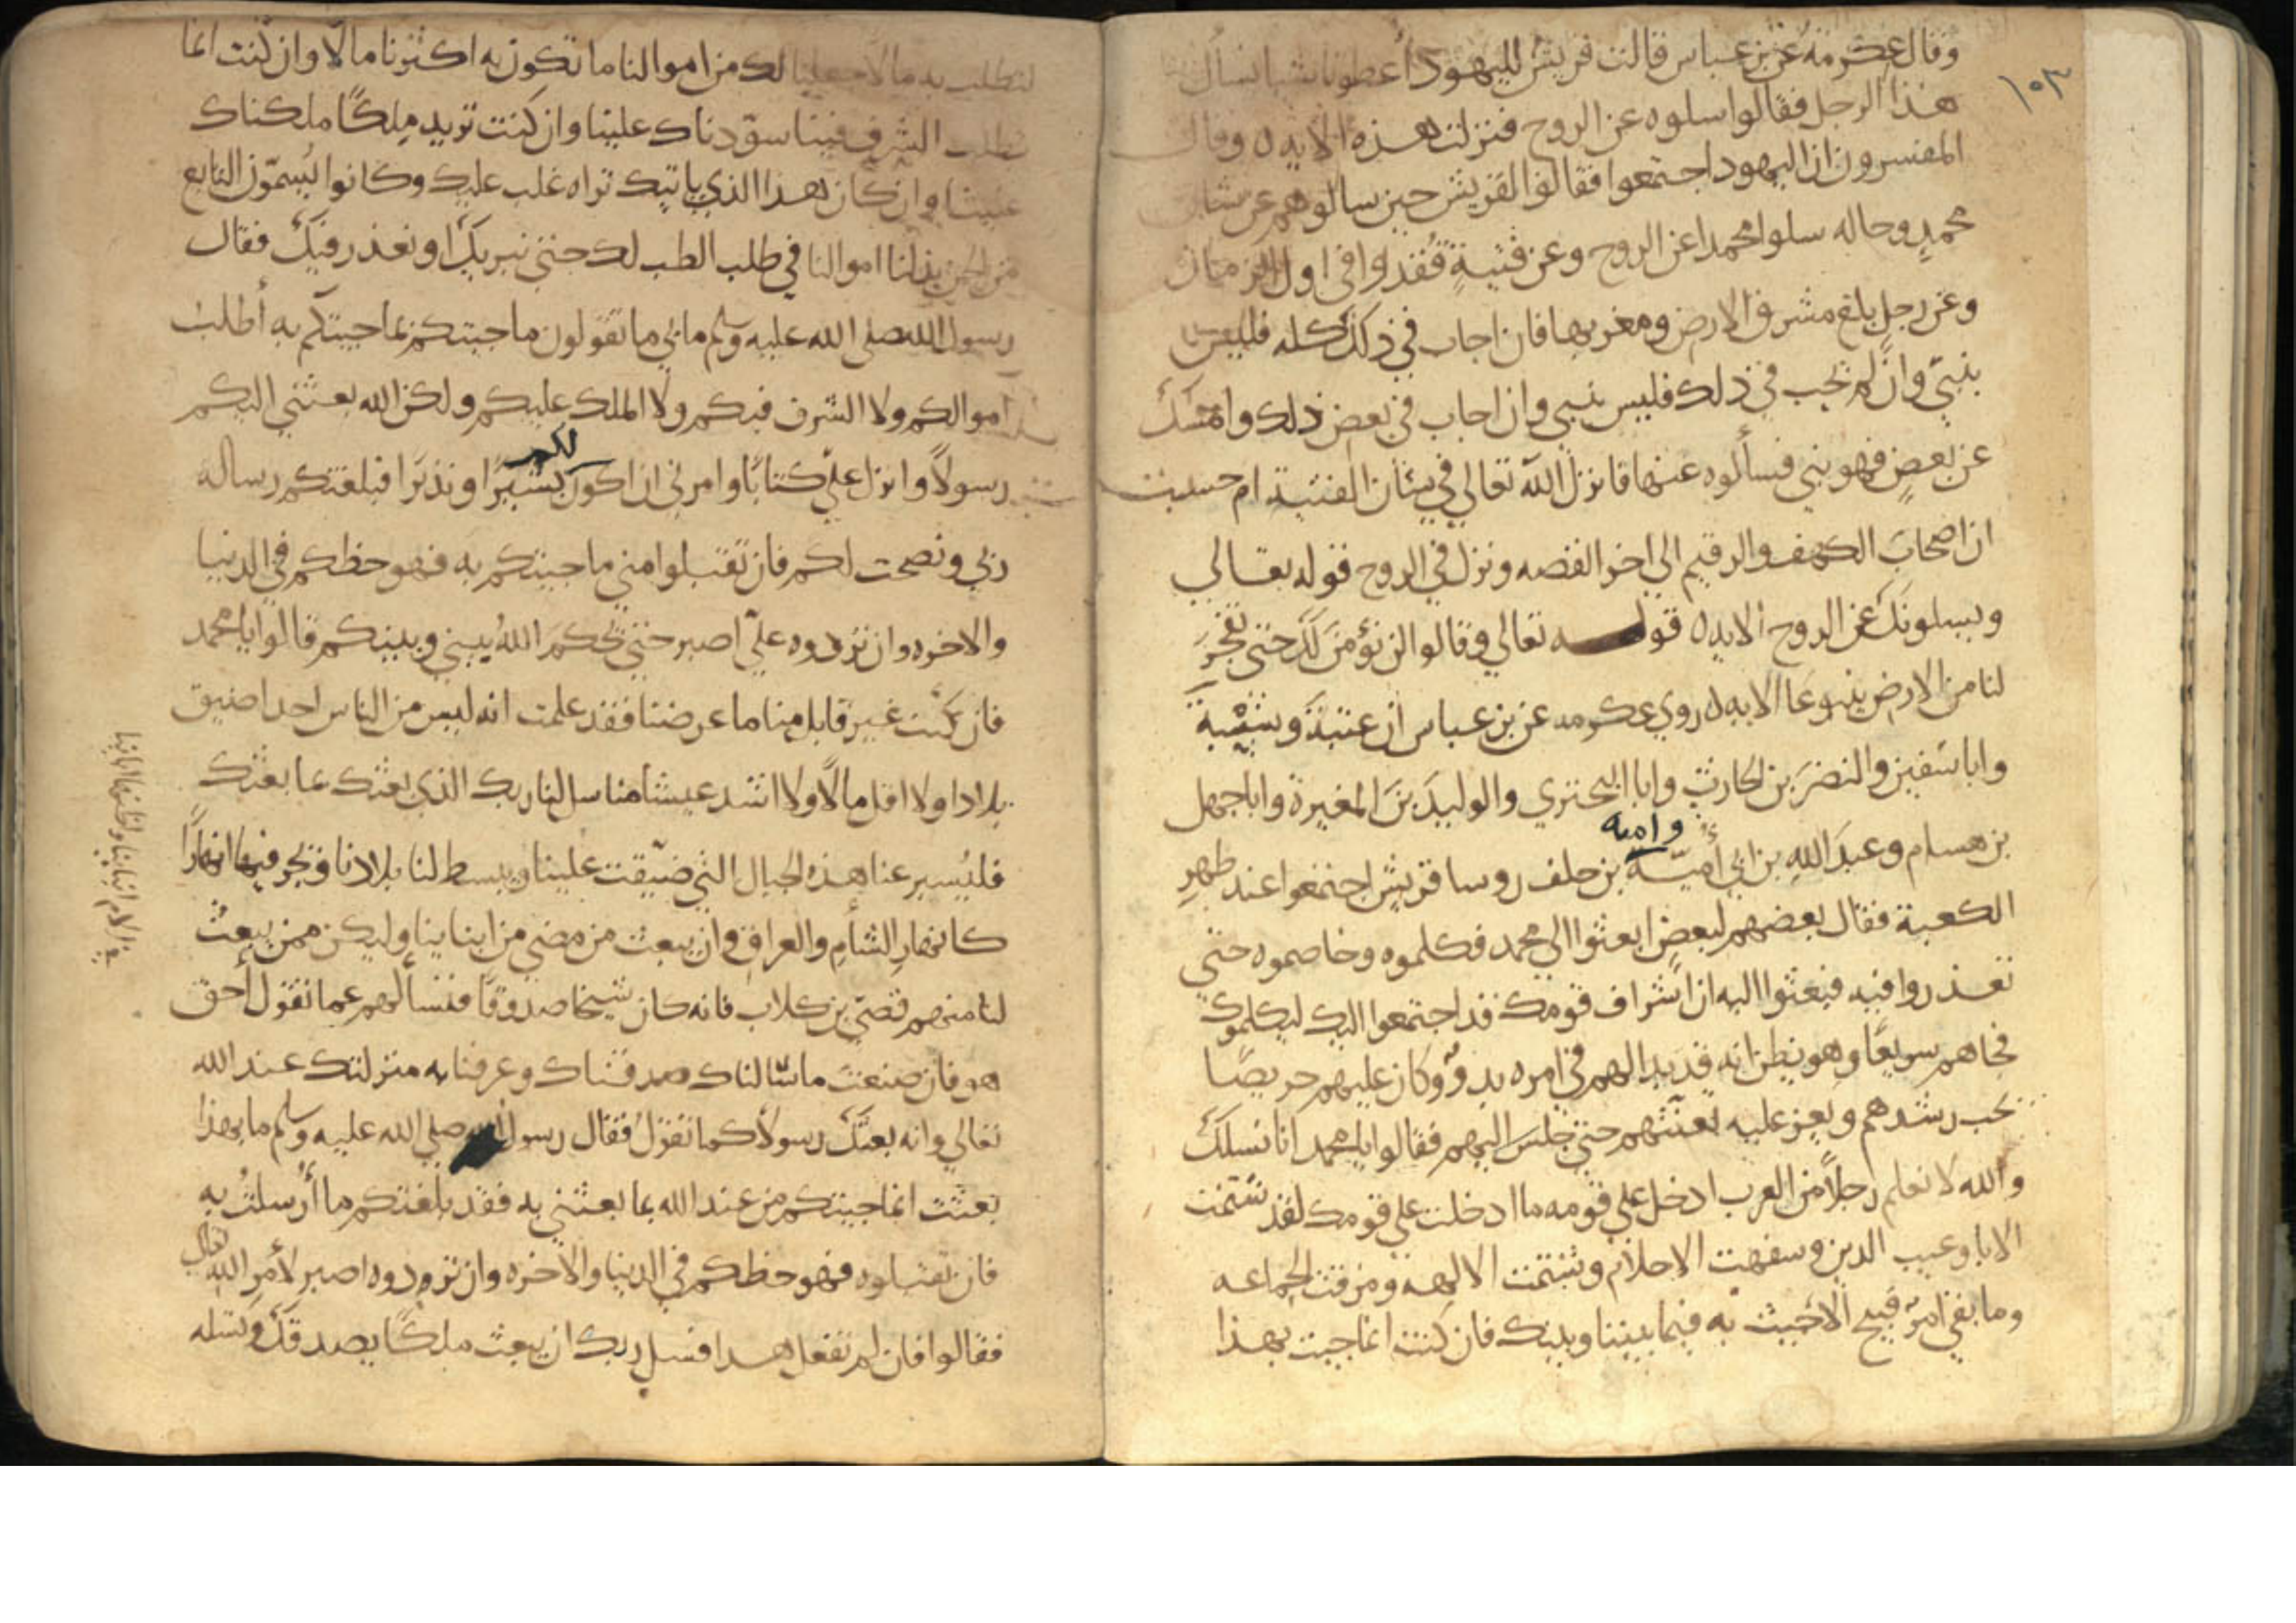 ١٠٣
وقال عكرمة عن بن عباس قالت قريش لليهود أعطونا شيا نسأل
هذا الرجل فقالوا سلوه عن الروح فنزلت هذه الايه وقال
المفسرون ان اليهود اجتمعوا فقالوا لقريش حين سالوهم عن شان
محمدٍ وحاله سلوا محمدا عن الروح وعن فتيةٍ فُقدوا في اول الزمان
وعن رجل بلغ مشرق الارض ومغربها فان اجاب في ذلك كله فليس
بنبيّ وان لم يجب في ذلك فليس بنبي وان اجاب في بعض ذلك وامسك
عن بعضٍ فهو نبي فسألوه عنها فانزل الله تعالي في شان الفتية ام حسبت
ان اصحابَ الكهف والرقيم الي اخر القصه ونزل في الروح قوله تعالي
ويسلونك عن الروح الايه قوله تعالي وقالوا لن نؤمنَ لكَ حتي تفجرَ
لنا من الارض ينبوعا الايه روي عكرمه عن بن عباس ان عتبة وشيبة
وابا سفين والنضرَ بن الحارث وابا البحتري والوليدَ بنَ المغيرة وابا جهل
بن هسام وعبدَ اللهِ بن ابي أميّة وامية بن خلف روسا قريش اجتمعوا عند ظهرِ
الكعبة فقال بعضهم لبعضٍ ابعثوا الي محمد فكلموه وخاصموه حتي
تعذروا فيه فبعثوا اليه ان اشراف قومك قد اجتمعوا اليك ليكلموك
فجاهم سريعًا وهو يظن انه قد بدا لهم في امره بدوٌ وكان عليهم حريصًا
يحب رشدهم ويعز عليه تعنّتهم حتي جلسَ اليهم فقالوا يا محمد انا نسلك
والله لا نعلم رجلاً من العرب ادخل علي قومه ما ادخلت علي قومك لقد شتمت
الابا وعبت الدين وسفهت الاحلام وشتمت الالهه ومزقت الجماعه
وما بقي امرٌ قبيح الا جيت به فيما بيننا وبينك فان كنت انما جيت بهذا
لتطلب به مالا جعلنا لك من اموالنا ما تكون به اكثرنا مالاً وان كنت انما
تطلب الشرف فينا سوّدناك علينا وان كنت تريد ملكًا ملكناك
علينا وان كان هذا الذي ياتيك تراه غلب عليك وكانوا يُسمّون التابع
من الجن بذلنا اموالنا في طلب الطب لك حتي نبريك او نعذر فيك فقال
رسول الله صلي الله عليه وسلم ما بي ما تقولون ما جيتكم بما جيتكم به أطلب
اموالكم ولا الشرف فيكم ولا الملك عليكم ولكن الله بعثني اليكم
رسولاً وانزل عليّ كتابًا وامرني ان اكون لكم بشيرًا ونذيرًا فبلغتكم رساله
ربي ونصحت لكم فان تقبلوا مني ما جيتكم به فهو حظكم في الدنيا
والاخره وان تردوه عليّ اصبر حتي يحكمَ اللهُ بيني وبينكم قالوا يا محمد
فان كنت غير قابل منا ما عرضنا فقد علمت انه ليس من الناس احد اضيق
بلادا ولا اقل مالًا ولا اشد عيشا منا سل لنا ربك الذي بعثك بما بعثك
فليُسير عنا هذه الجبال التي ضيّقت علينا ويبسط لنا بلادنا ويجر فيها انهارًا
كانهارِ الشامِ والعراق وان يبعث من مضي من ابناينا وليكن ممن يبعثُ
لنا منهم قصيّ بن كلاب فانه كان شيخا صدوقًا فنسألهم عما تقول أحق
هو فان صنعت ما سالناك صدقناك وعرفنا به منزلتك عند الله
تعالي وانه بعثك رسولاً كما تقول فقال رسول الله صلي الله عليه وسلم ما بهذا
بعثت انما جيتكم من عند الله بما بعثني به فقد بلغتكم ما أُرسلتُ به
فان تقبلوه فهو حظكم في الدنيا والاخره وان تردوه اصبر لأمر الله تعالي
فقالوا فان لم تفعل هذا فسل ربك ان يبعث ملكًا يصدقك وتسله